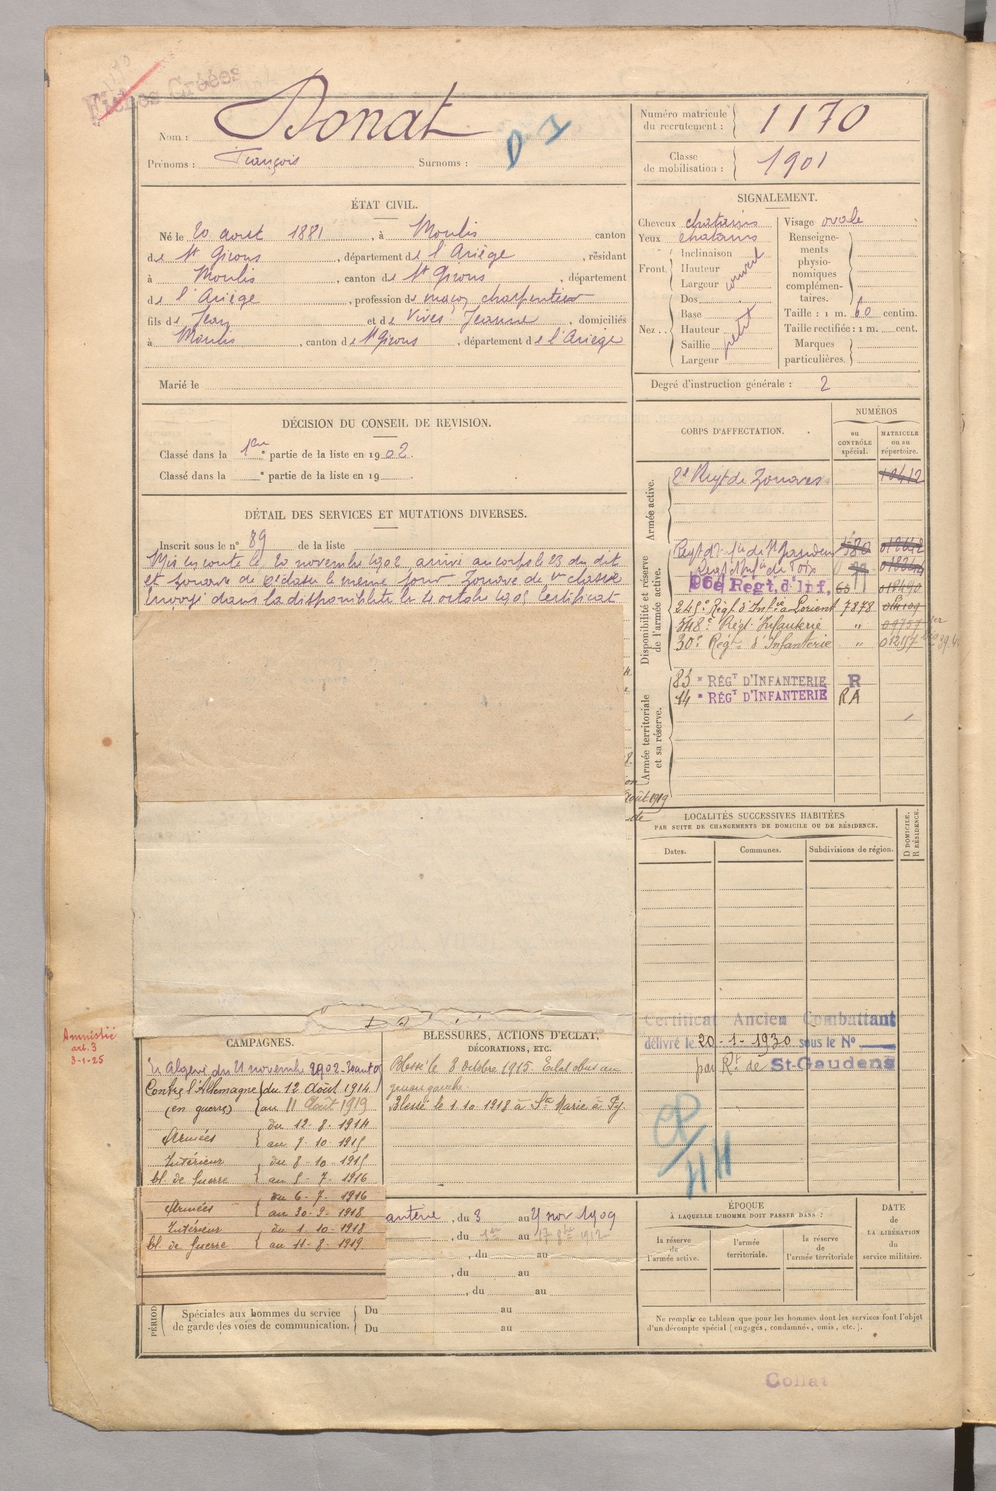 Fiches Créées
Nom : Donat
Prénoms : François Surnoms :
Numéro matricule
du recrutement : 1170
Classe
de mobilisation : 1901
ÉTAT CIVIL.
Né le 20 aout 1881, à Moulis canton
de St Girons, département de l'Ariège, résidant
à Moulis, canton de St Girons, département
de l'Ariège, profession de maçon charpentier
fils de Jean et de Vives Jeanne, domiciliés
à Moulis, canton de St Girons, département de l'Ariège
Marié le
SIGNALEMENT.
Cheveux chatains
Yeux chatains
Front. Inclinaison
Hauteur
Largeur
Nez. Dos
Base
Hauteur
Saillie
Largeur
petit
Visage ovale
Renseigne-
ments
physio-
nomiques
complémen-
taires.
Taille : 1 m. 60 centim.
Taille rectifiée : 1 m. cent.
Marques
particulières.
Degré d'instruction générale : 2
DÉCISION DU CONSEIL DE REVISION.
Classé dans la 1ère partie de la liste en 1902.
Classé dans la e partie de la liste en 19
DÉTAIL DES SERVICES ET MUTATIONS DIVERSES.
Inscrit sous le n° 89 de la liste
Mis en route le 20 novembre 1902 arrivé au corps le 23 du dit
et zouave de 2e classe le même jour Zouave de 1e classe
Envoyé dans la disponibilité le 4 octobre 1905 Certificat
CORPS D'AFFECTATION.
NUMÉROS
au
CONTRÔLE
spécial.
MATRICULE
ou au
répertoire.
Armée active.
2e Regt de Zouaves 10412
Disponibilité et réserve
de l'armée active.
Regt d'Inf.ie de St Gaudens
Regt d'Inf.ie de Foix
96e Régt. d'Inf.
245e Régt d'Inf.ie à Lorient 7878
348e Régt Infanterie "
30e Régt d'Infanterie "
Armée territoriale
et sa réserve.
83e RÉGT D'INFANTERIE R
14e RÉGT D'INFANTERIE RA
août 1919
LOCALITÉS SUCCESSIVES HABITÉES
PAR SUITE DE CHANGEMENTS DE DOMICILE OU DE RÉSIDENCE.
D DOMICILE.
R RÉSIDENCE.
Dates.
Communes.
Subdivisions de région.
Certificat Ancien Combattant
délivré le 20-1-1930 sous le N°
par Rt de St-Gaudens
Amnistié
art. 3
3-1-25
CAMPAGNES.
Contre l'Allemagne du 12 Août 1914
(en guerre) au 11 Août 1919
Armées du 12-8-1914
au 7-10-1915
Intérieur du 8-10-1915
bl. de Guerre au 5-7-1916
Armées du 6-7-1916
au 30-9-1918
Intérieur du 1-10-1918
bl. de Guerre au 11-8-1919
BLESSURES, ACTIONS D'ÉCLAT,
DÉCORATIONS, ETC.
Blessé le 8 Octobre 1915 Eclat obus au
genou gauche
Blessé le 1.10.1918 à Ste Marie à Py.
anterie, du 8 au 24 nov 1909
, du 1er au 17 8bre 1912
, du au
, du au
, du au
PÉRIOD
Spéciales aux hommes du service
de garde des voies de communication.
Du au
Du au
ÉPOQUE
À LAQUELLE L'HOMME DOIT PASSER DANS :
la réserve
de
l'armée active.
l'armée
territoriale.
la réserve
de
l'armée territoriale
DATE
de
LA LIBÉRATION
du
service militaire.
Ne remplir ce tableau que pour les hommes dont les services font l'objet
d'un décompte spécial (engagés, condamnés, omis, etc.).
Collat